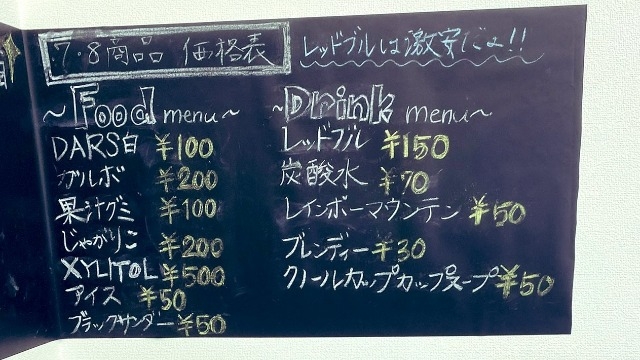 7・8商品 価格表
レッドブルは激安だよ!!
~Food menu~
DARS白 ¥100
ガルボ ¥200
果汁グミ ¥100
じゃがりこ ¥200
XYLITOL ¥500
アイス ¥50
ブラックサンダー ¥50
~Drink menu~
レッドブル ¥150
炭酸水 ¥70
レインボーマウンテン ¥50
ブレンディー ¥30
クノールカップカップスープ ¥50